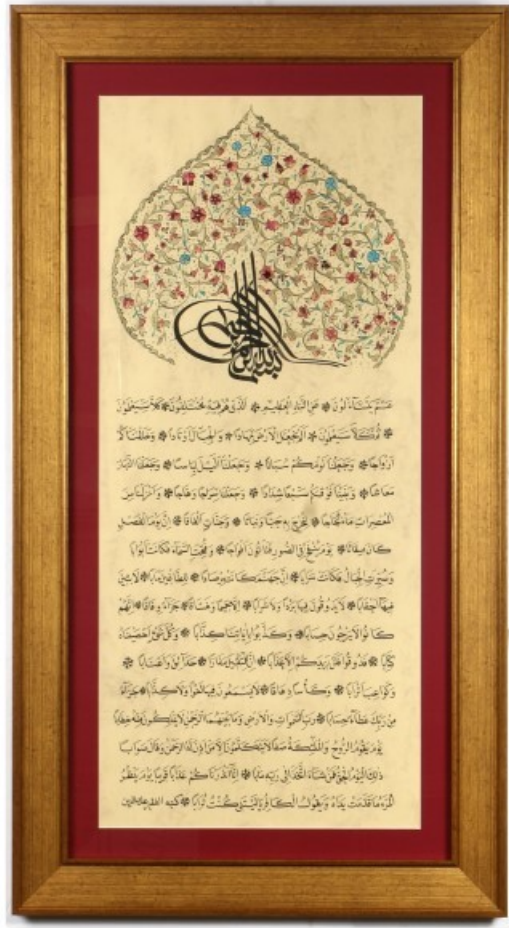 بسم الله الرحمن الرحيم
عَمَّ يَتَسَآءَلُونَ عَنِ النَّبَإِ الْعَظِيمِ الَّذِي هُمْ فِيهِ مُخْتَلِفُونَ كَلَّا سَيَعْلَمُونَ
ثُمَّ كَلَّا سَيَعْلَمُونَ اَلَمْ نَجْعَلِ الْاَرْضَ مِهَادًا وَالْجِبَالَ اَوْتَادًا وَخَلَقْنَاكُمْ
اَزْوَاجًا وَجَعَلْنَا نَوْمَكُمْ سُبَاتًا وَجَعَلْنَا الَّيْلَ لِبَاسًا وَجَعَلْنَا النَّهَارَ
مَعَاشًا وَبَنَيْنَا فَوْقَكُمْ سَبْعًا شِدَادًا وَجَعَلْنَا سِرَاجًا وَهَّاجًا وَاَنْزَلْنَا مِنَ
الْمُعْصِرَاتِ مَآءً ثَجَّاجًا لِنُخْرِجَ بِهِ حَبًّا وَنَبَاتًا وَجَنَّاتٍ اَلْفَافًا اِنَّ يَوْمَ الْفَصْلِ
كَانَ مِيقَاتًا يَوْمَ يُنْفَخُ فِي الصُّورِ فَتَأْتُونَ اَفْوَاجًا وَفُتِحَتِ السَّمَآءُ فَكَانَتْ اَبْوَابًا
وَسُيِّرَتِ الْجِبَالُ فَكَانَتْ سَرَابًا اِنَّ جَهَنَّمَ كَانَتْ مِرْصَادًا لِلطَّاغِينَ مَاٰبًا لَابِثِينَ
فِيهَا اَحْقَابًا لَا يَذُوقُونَ فِيهَا بَرْدًا وَلَا شَرَابًا اِلَّا حَمِيمًا وَغَسَّاقًا جَزَآءً وِفَاقًا اِنَّهُمْ
كَانُوا لَا يَرْجُونَ حِسَابًا وَكَذَّبُوا بِاٰيَاتِنَا كِذَّابًا وَكُلَّ شَيْءٍ اَحْصَيْنَاهُ
كِتَابًا فَذُوقُوا فَلَنْ نَزِيدَكُمْ اِلَّا عَذَابًا اِنَّ لِلْمُتَّقِينَ مَفَازًا حَدَآئِقَ وَاَعْنَابًا
وَكَوَاعِبَ اَتْرَابًا وَكَأْسًا دِهَاقًا لَا يَسْمَعُونَ فِيهَا لَغْوًا وَلَا كِذَّابًا جَزَآءً
مِنْ رَبِّكَ عَطَآءً حِسَابًا رَبِّ السَّمٰوَاتِ وَالْاَرْضِ وَمَا بَيْنَهُمَا الرَّحْمٰنِ لَا يَمْلِكُونَ مِنْهُ خِطَابًا
يَوْمَ يَقُومُ الرُّوحُ وَالْمَلٰٓئِكَةُ صَفًّا لَا يَتَكَلَّمُونَ اِلَّا مَنْ اَذِنَ لَهُ الرَّحْمٰنُ وَقَالَ صَوَابًا
ذٰلِكَ الْيَوْمُ الْحَقُّ فَمَنْ شَآءَ اتَّخَذَ اِلٰى رَبِّهِ مَاٰبًا اِنَّا اَنْذَرْنَاكُمْ عَذَابًا قَرِيبًا يَوْمَ يَنْظُرُ
الْمَرْءُ مَا قَدَّمَتْ يَدَاهُ وَيَقُولُ الْكَافِرُ يَا لَيْتَنِي كُنْتُ تُرَابًا كتبه